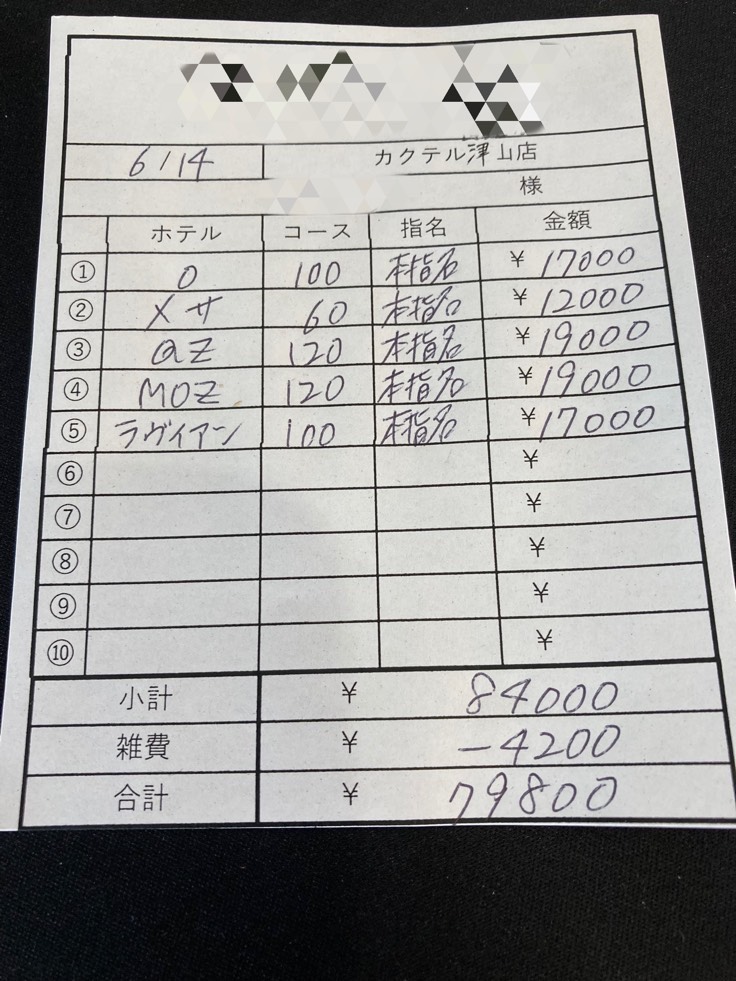 6/14 カクテル津山店
様
ホテル コース 指名 金額
① O 100 本指名 ¥17000
② メサ 60 本指名 ¥12000
③ aZ 120 本指名 ¥19000
④ MOZ 120 本指名 ¥19000
⑤ ラヴィアン 100 本指名 ¥17000
⑥ ¥
⑦ ¥
⑧ ¥
⑨ ¥
⑩ ¥
小計 ¥ 84000
雑費 ¥ -4200
合計 ¥ 79800